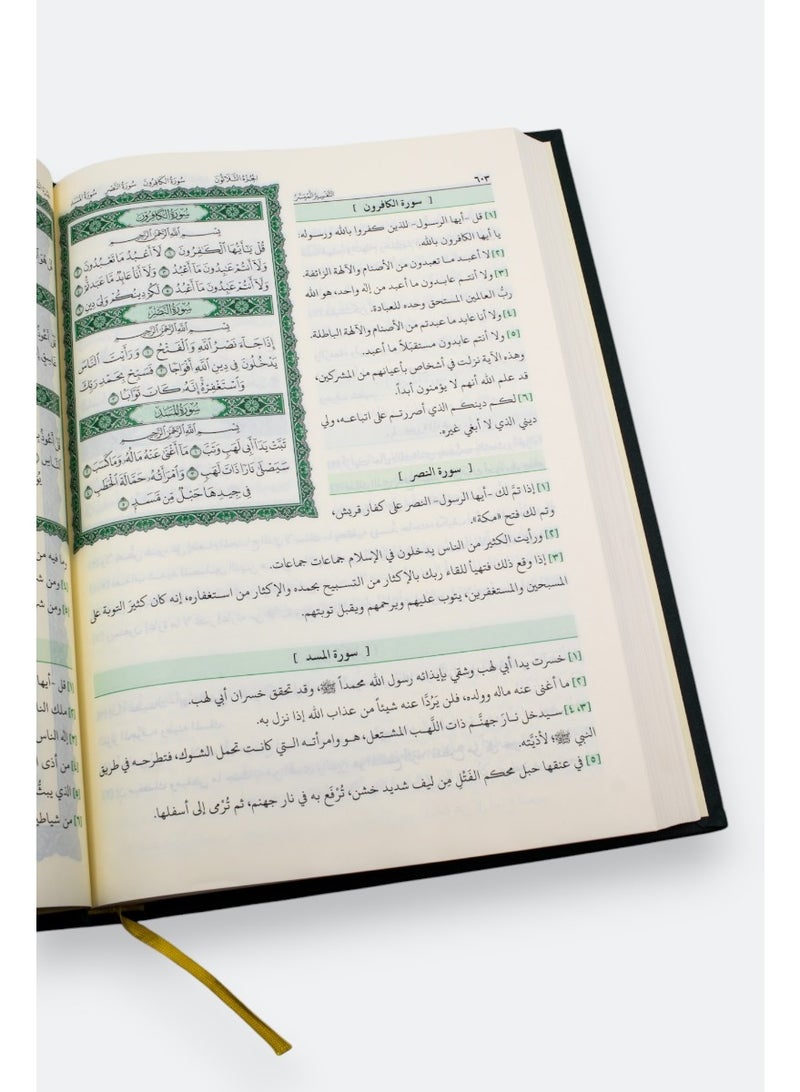 ٦٠٣
التفسير الميسر
الجزء الثلاثون سورة الكافرون سورة النصر سورة المسد
سُورَةُ الكَافِرُونَ
بِسْمِ اللَّهِ الرَّحْمَٰنِ الرَّحِيمِ
قُلْ يَٰٓأَيُّهَا ٱلْكَٰفِرُونَ ١ لَآ أَعْبُدُ مَا تَعْبُدُونَ ٢
وَلَآ أَنتُمْ عَٰبِدُونَ مَآ أَعْبُدُ ٣ وَلَآ أَنَا۠ عَابِدٌ مَّا عَبَدتُّمْ ٤
وَلَآ أَنتُمْ عَٰبِدُونَ مَآ أَعْبُدُ ٥ لَكُمْ دِينُكُمْ وَلِىَ دِينِ ٦
سُورَةُ النَّصْرِ
بِسْمِ اللَّهِ الرَّحْمَٰنِ الرَّحِيمِ
إِذَا جَآءَ نَصْرُ ٱللَّهِ وَٱلْفَتْحُ ١ وَرَأَيْتَ ٱلنَّاسَ
يَدْخُلُونَ فِى دِينِ ٱللَّهِ أَفْوَاجًا ٢ فَسَبِّحْ بِحَمْدِ رَبِّكَ
وَٱسْتَغْفِرْهُ إِنَّهُۥ كَانَ تَوَّابًۢا ٣
سُورَةُ المَسَدِ
بِسْمِ اللَّهِ الرَّحْمَٰنِ الرَّحِيمِ
تَبَّتْ يَدَآ أَبِى لَهَبٍ وَتَبَّ ١ مَآ أَغْنَىٰ عَنْهُ مَالُهُۥ وَمَا كَسَبَ ٢
سَيَصْلَىٰ نَارًا ذَاتَ لَهَبٍ ٣ وَٱمْرَأَتُهُۥ حَمَّالَةَ ٱلْحَطَبِ ٤
فِى جِيدِهَا حَبْلٌ مِّن مَّسَدٍۭ ٥
[ سورة الكافرون ]
[١] قل -أيها الرسول- للذين كفروا بالله ورسوله:
يا أيها الكافرون بالله.
[٢] لا أعبد ما تعبدون من الأصنام والآلهة الزائفة.
[٣] ولا أنتم عابدون ما أعبد من إله واحد، هو الله
ربُّ العالمين المستحق وحده للعبادة.
[٤] ولا أنا عابد ما عبدتم من الأصنام والآلهة الباطلة.
[٥] ولا أنتم عابدون مستقبَلاً ما أعبد.
وهذه الآية نزلت في أشخاص بأعيانهم من المشركين،
قد علم الله أنهم لا يؤمنون أبداً.
[٦] لكم دينكم الذي أصررتم على اتباعه، ولي
ديني الذي لا أبغي غيره.
[ سورة النصر ]
[١] إذا تمَّ لك -أيها الرسول- النصر على كفار قريش،
وتم لك فتح «مكة».
[٢] ورأيت الكثير من الناس يدخلون في الإسلام جماعات جماعات.
[٣] إذا وقع ذلك فتهيأ للقاء ربك بالإكثار من التسبيح بحمده والإكثار من استغفاره، إنه كان كثيرَ التوبة على
المسبحين والمستغفرين، يتوب عليهم ويرحمهم ويقبل توبتهم.
[ سورة المسد ]
[١] خسرت يدا أبي لهب وشقي بإيذائه رسول الله محمداً ﷺ، وقد تحقق خسران أبي لهب.
[٢] ما أغنى عنه ماله وولده، فلن يَرُدَّا عنه شيئاً من عذاب الله إذا نزل به.
[٣، ٤] سيدخل نارَ جهنَّم ذات اللَّهب المشتعل، هو وامرأته التي كانت تحمل الشوك، فتطرحه في طريق
النبي ﷺ؛ لأذيَّته.
[٥] في عنقها حبل محكم الفَتْلِ مِن ليف شديد خشن، تُرْفَع به في نار جهنم، ثم تُرْمى إلى أسفلها.